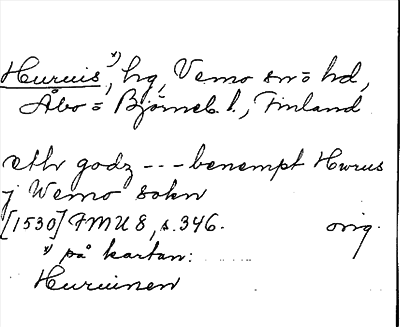 Huruis x), hg, Vemo sn = hd,
Åbo = Björneb. l., Finland
ethr godz --- benempt Hwrus
j Wemo sokn
[1530] FMU 8, s. 346. orig.
x) på kartan:
Huruinen